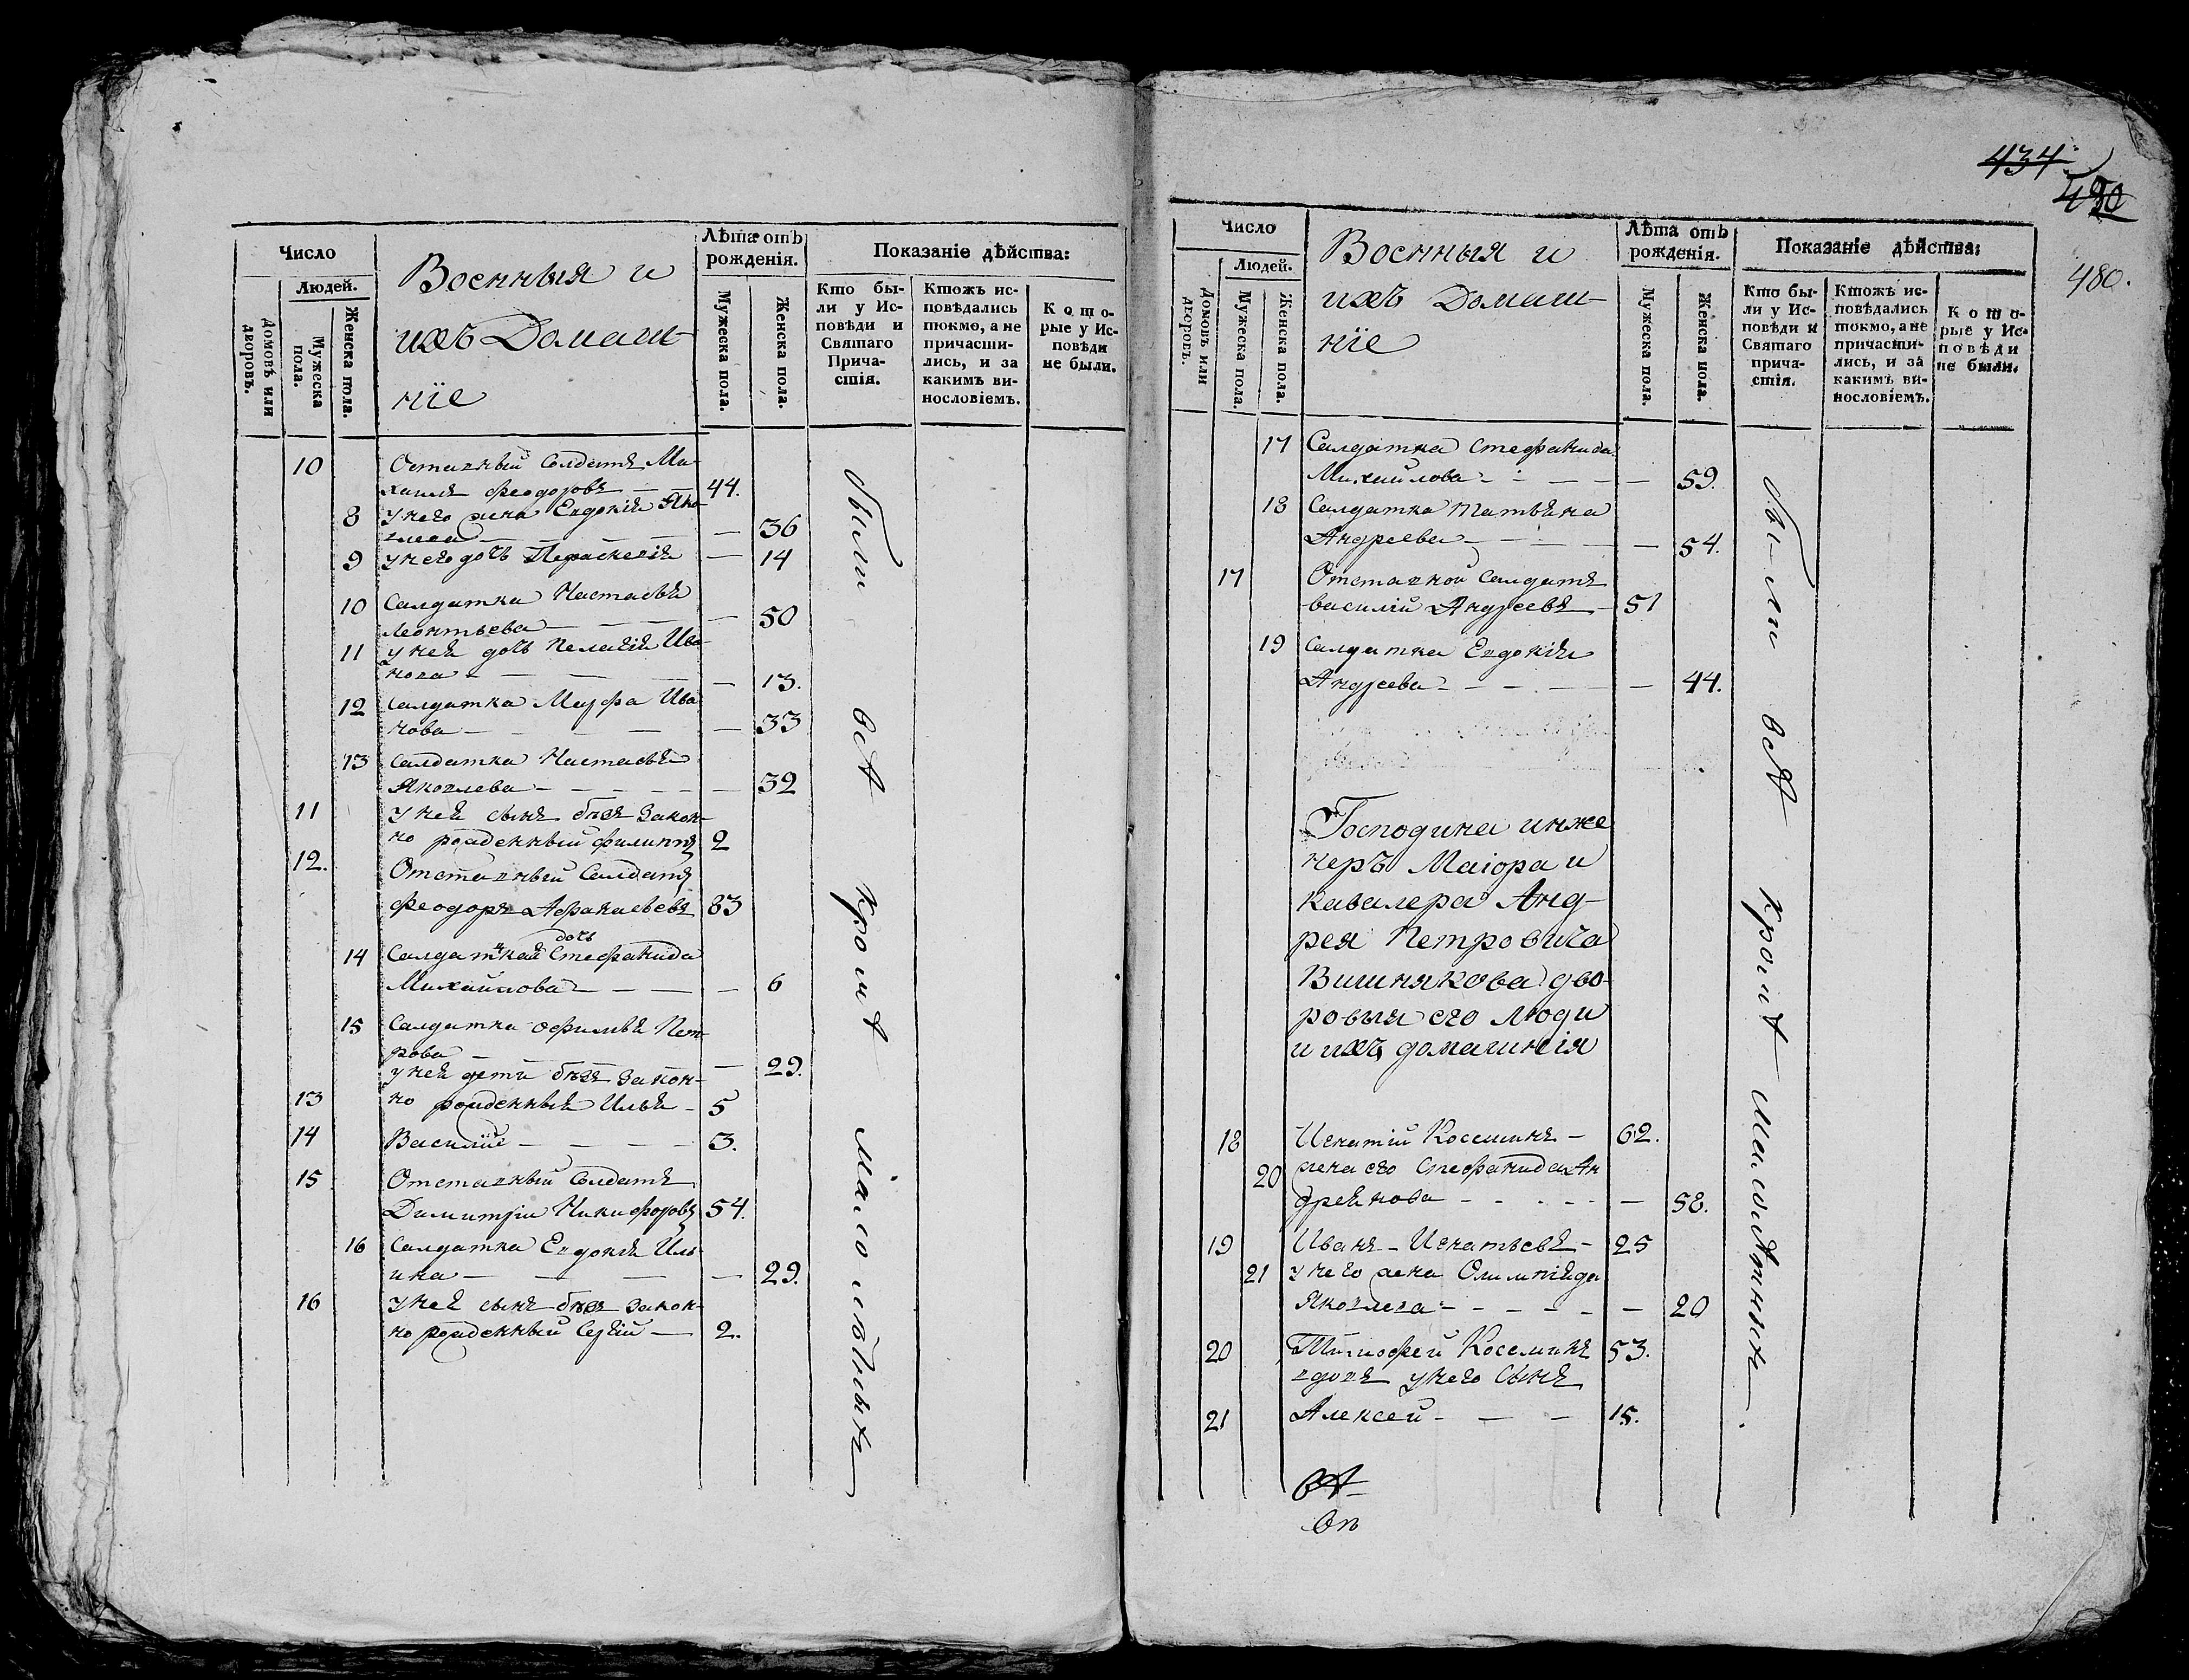 Число
Людей.
Домовъ или дворовъ.
Мужеска пола.
Женска пола.
Военныя и
ихъ Домаш-
ніе
Лѣта отъ рожденія.
Мужеска пола.
Женска пола.
Показаніе дѣйства:
Кто бы-
ли у Ис-
повѣди и
Святаго
Прича-
стія.
Ктожъ ис-
повѣдались
токмо, а не
причасти-
лись, и за
какимъ ви-
нословіемъ.
Кото-
рые у Ис-
повѣди
не были.
10 Отставный Солдатъ Ми-
хаилъ Феодоровъ — — 44.
8 у него жена Евдокія Яко-
влева — — — 36
9 у него дочь Параскевія — 14
10 Салдатка Настасья
Леонтьева — — — 50
11 у неи дочь Пелагія Ива-
нова — — — 13.
12 Салдатка Марфа Ива-
нова — — — 33
13 Салдатка Настасья
Яковлева — — — 32
11 у неи сынъ безъ закон-
но рожденный Филиппъ 2
12. Отставный Салдатъ
Феодоръ Афанасьевъ 83
дочь
14 Салдатская Стефанида
Михайлова — — — 6
15 Салдатка Офимья Пет-
рова — — 29.
у неи дети безъ закон-
13 но рожденныя Илья — 5
14 Василие — — — 3.
15 Отставный Солдатъ
Димитріи Никифоровъ 54.
16 Салдатка Евдокія Иль-
ина — — — 29.
16 у неи сынъ безъ закон-
но рожденный Сергіи — 2.
были всѣ кромѣ малолѣтныхъ
434
480
480.
Число
Людей.
Домовъ или дворовъ.
Мужеска пола.
Женска пола.
Военныя и
ихъ Домаш-
ніе
Лѣта отъ рожденія.
Мужеска пола.
Женска пола.
Показаніе дѣйства:
Кто бы-
ли у Ис-
повѣди и
Святаго
прича-
стія.
Ктожъ ис-
повѣдались
токмо, а не
причасти-
лись, и за
какимъ ви-
нословіемъ.
Кото-
рые у Ис-
повѣди
не были.
17 Салдатка Стефанида
Михайлова — — — 59.
18 Салдатка Татьяна
Андреева — — — 54.
17 Отставной Салдатъ
Василіи Андреевъ — 51
19 Салдатка Евдокія
Андреева — — — 44.
Господина инже
неръ Маіора и
кавалера Анд-
рея Петровича
Вишнякова дво-
ровыя его люди
и ихъ домашнія
18 Игнатіи Косминъ — 62.
20 жена его Стефанида Ан
дреянова — — — 58.
19 Иванъ Игнатьевъ — 25
21 у него жена Олимпіяда
Яковлева — — — 20
20 Тимофеи Косминъ 53.
вдовъ у него Сынъ
21 Алексеи — — — 15.
были всѣ кромѣ малолѣтныхъ.